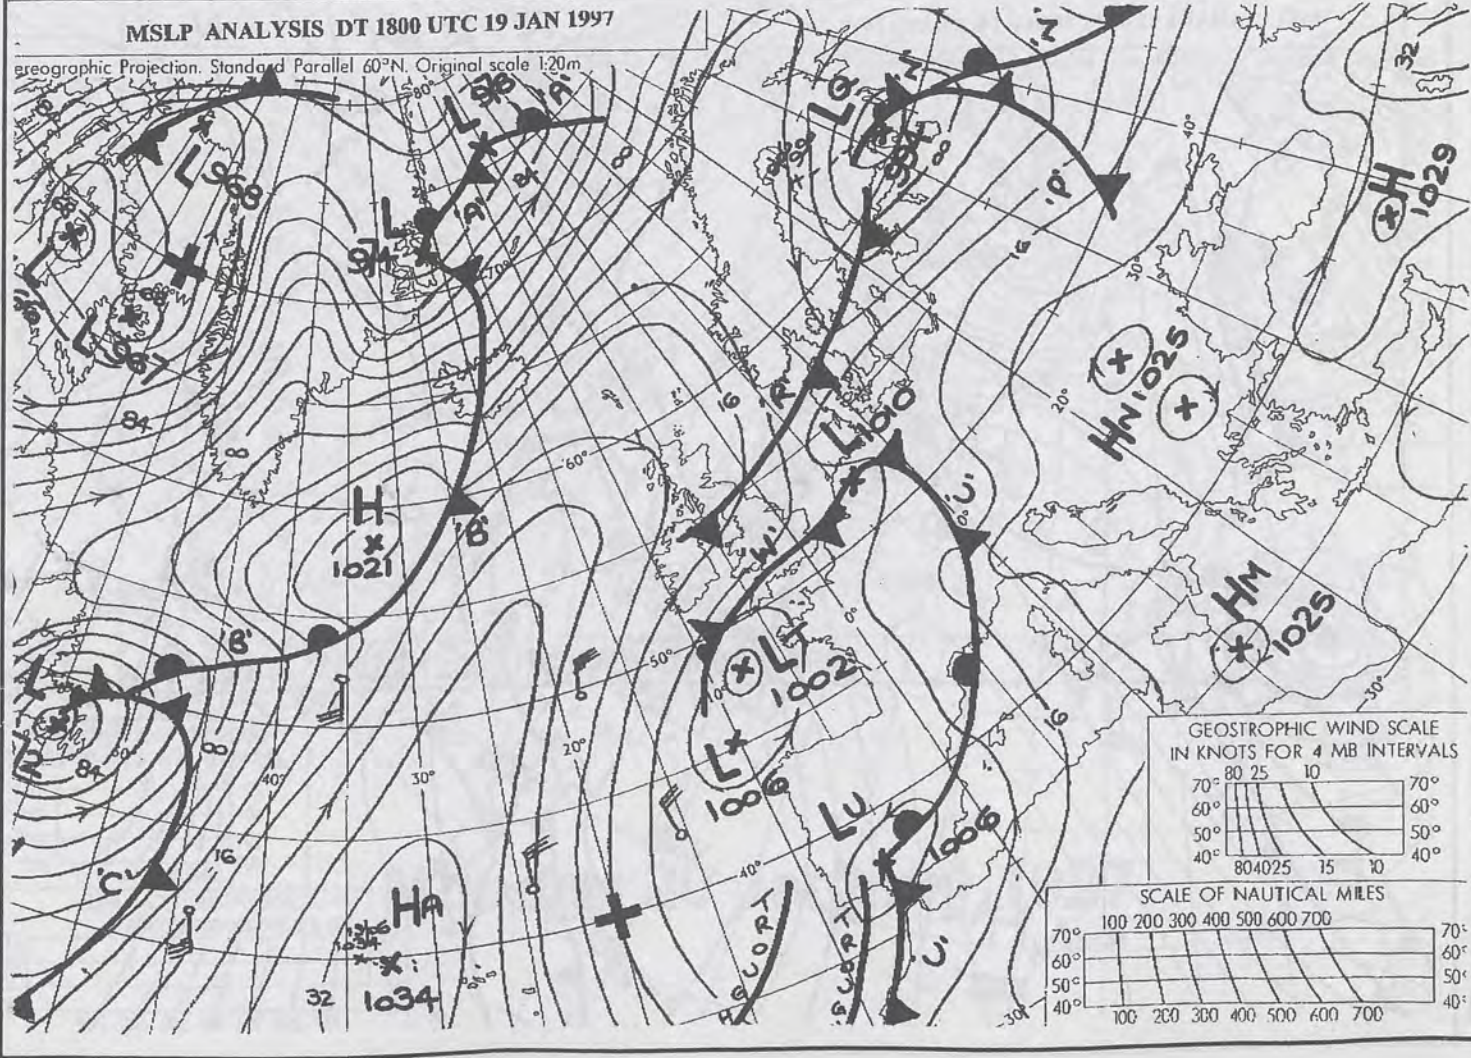 MSLP ANALYSIS DT 1800 UTC 19 JAN 1997
ereographic Projection. Standard Parallel 60°N. Original scale 1:20m
L 978 'A'
80°
L 968
L
974
'A'
84
70°
8
L 967
68
84
8
H
1021
'B'
'B'
60°
L
84
8
40°
30°
20°
50°
10°
16
'C'
HA
1034
1034
32
LQ
994
8
Z
'Z'
'P'
16
40°
30°
20°
32
H
1029
HN 1025
HM
1025
'R'
16
L 1010
'U'
0°
'W'
0°
LT
1002
L
1006
LU
1006
16
40°
30°
30°
TROUGH
TROUGH
'U'
GEOSTROPHIC WIND SCALE
IN KNOTS FOR 4 MB INTERVALS
80 25 10
70° 70°
60° 60°
50° 50°
40° 40°
80 40 25 15 10
SCALE OF NAUTICAL MILES
100 200 300 400 500 600 700
70° 70°
60° 60°
50° 50°
40° 40°
100 200 300 400 500 600 700